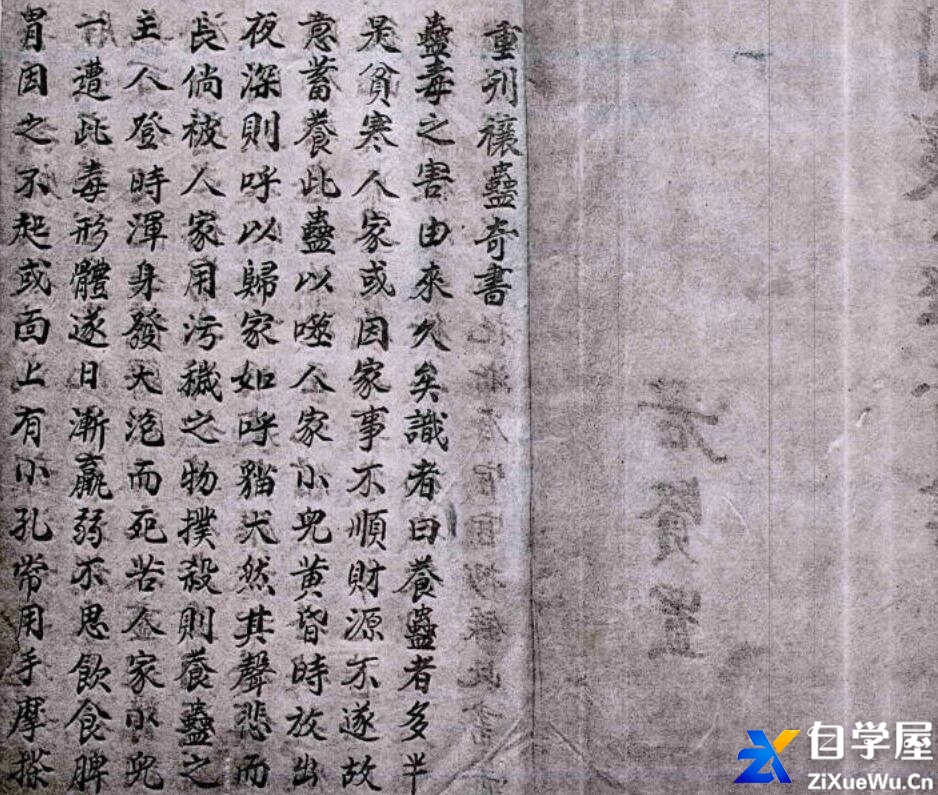 重刋禳蠱奇書
蠱毒之害由來久矣識者曰養蠱者多半
是貧寒人家或因家事不順財源不遂故
意蓄養此蠱以噬人家小兒黄昏時放出
夜深則呼以歸家如呼貓犬然其聲悲而
長倘被人家用污穢之物撲殺則養蠱之
主人登時渾身發大泡而死若人家小兒
一遭此毒形體遂日漸羸弱不思飲食脾
胃因之不起或面上有小孔常用手摩搽
自学屋
ZiXueWu.Cn